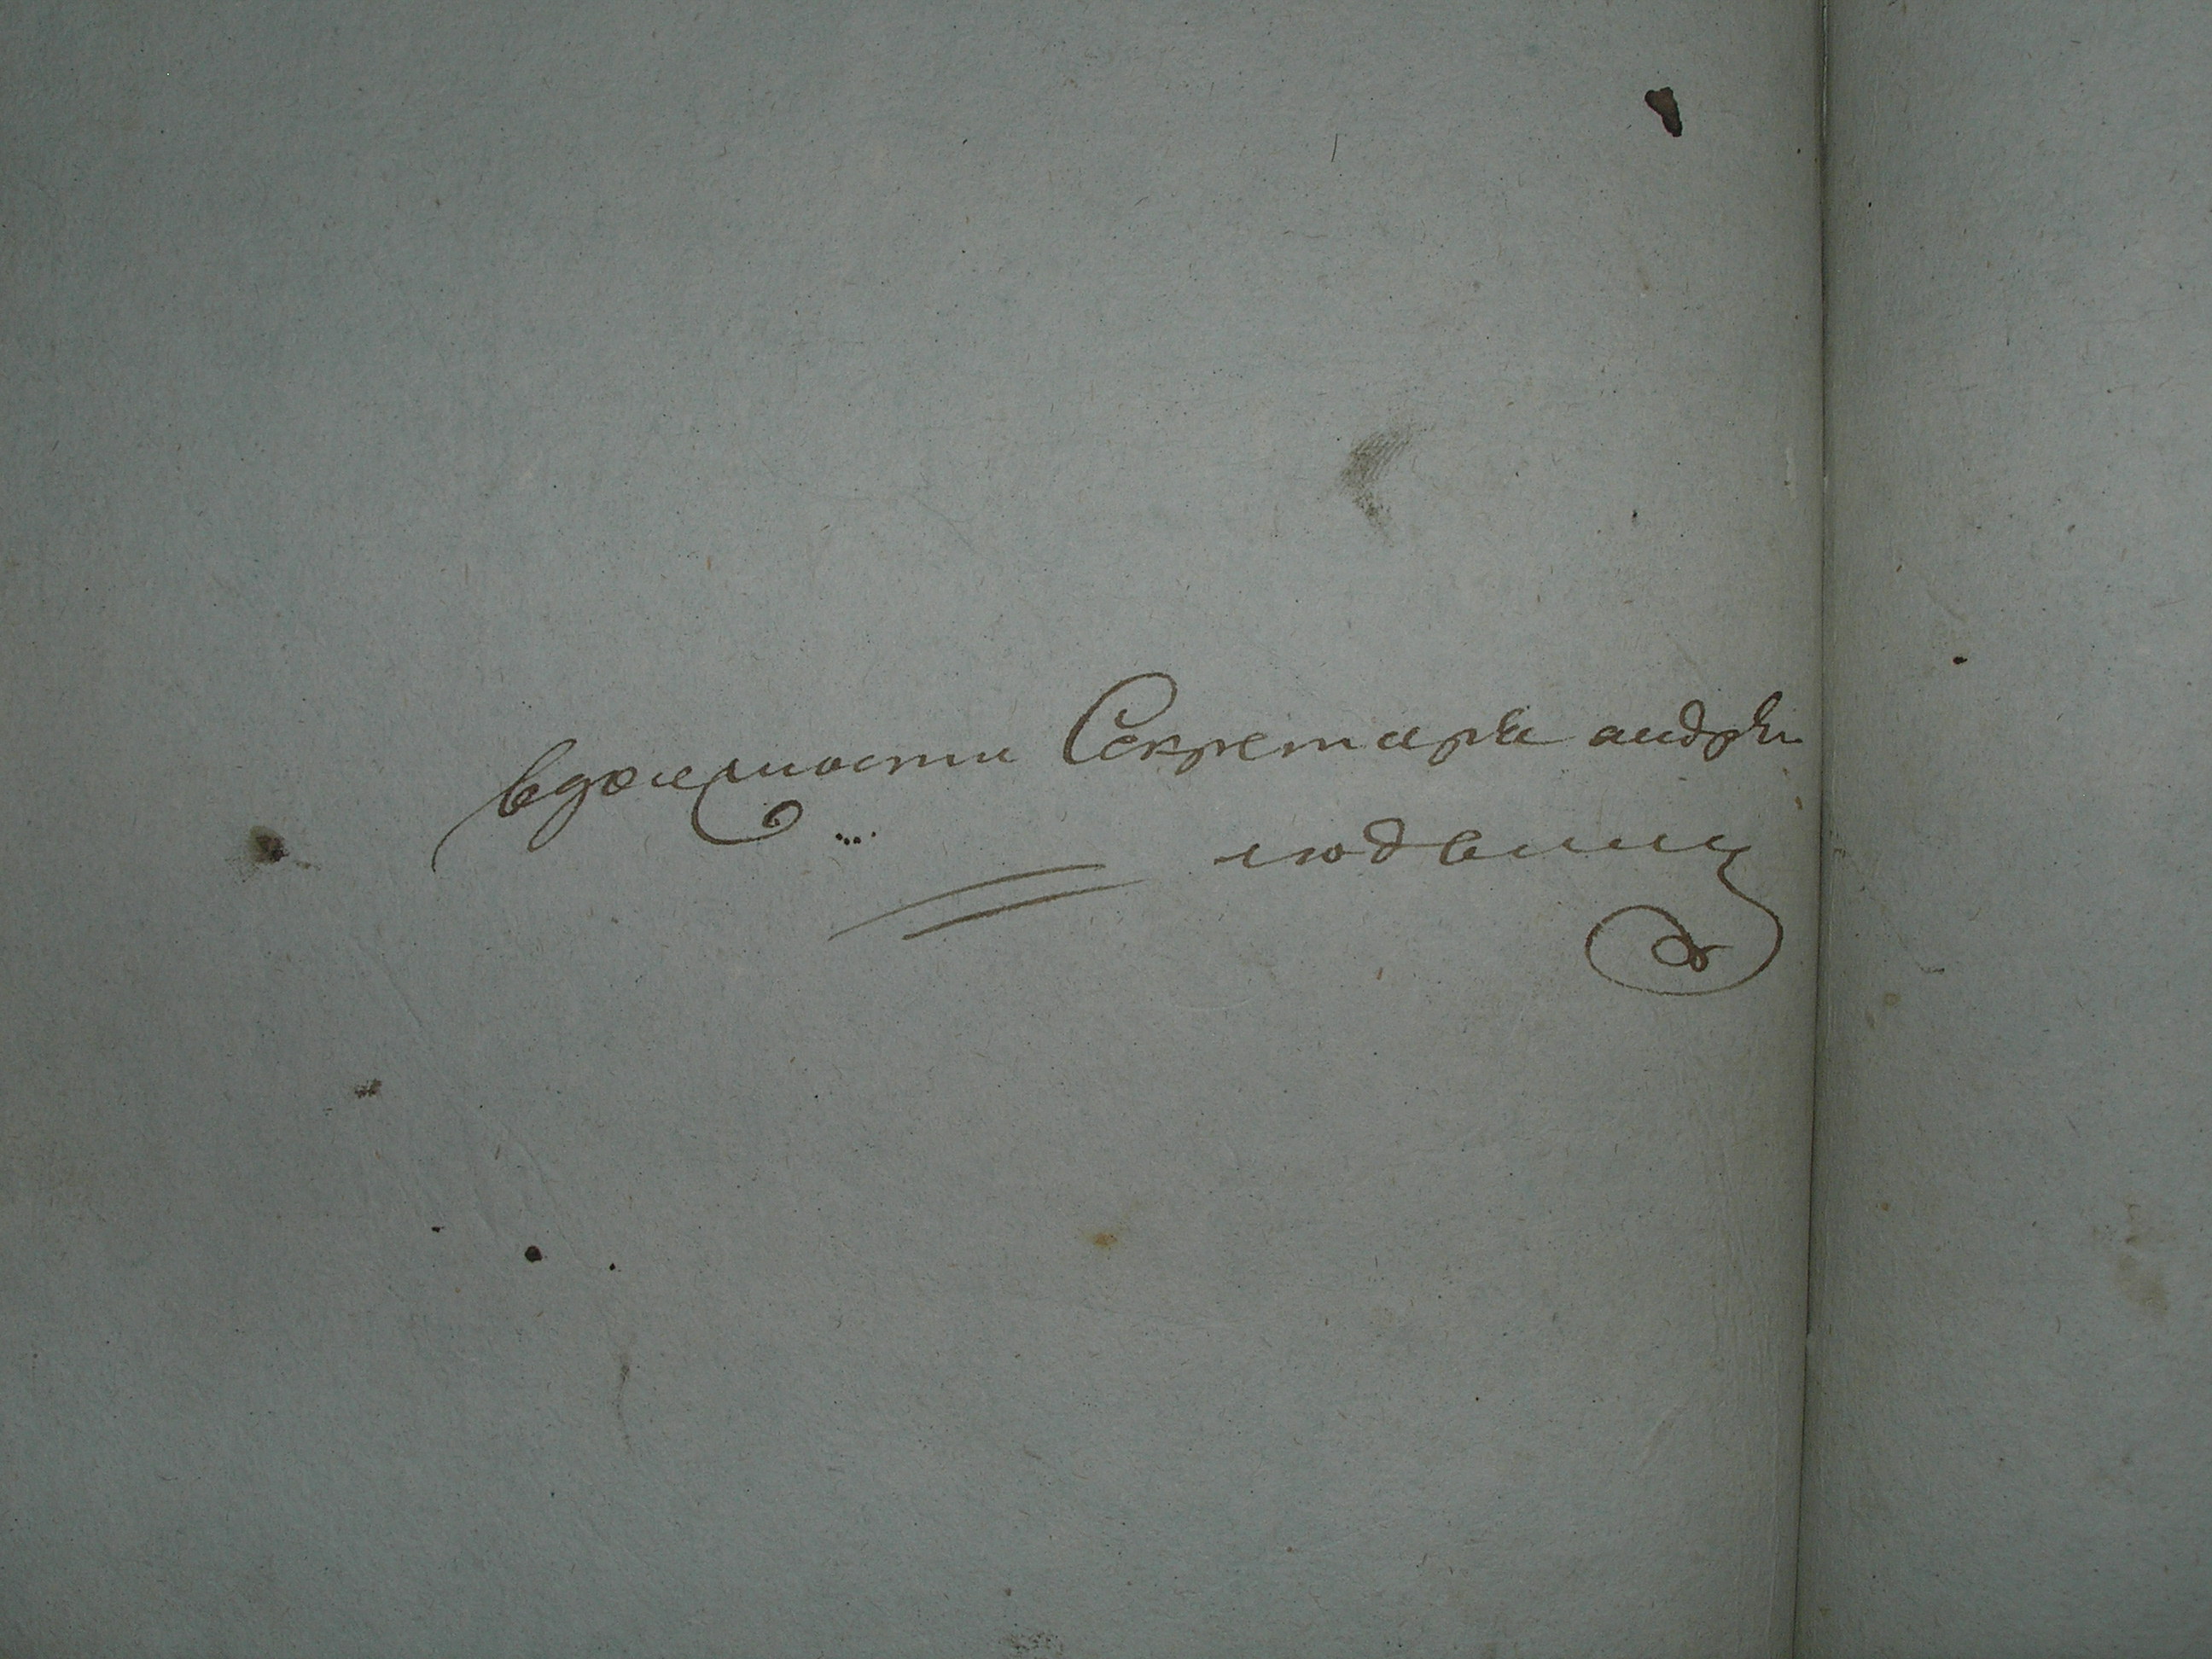 вдолжности Секретаря андрей
людвиг